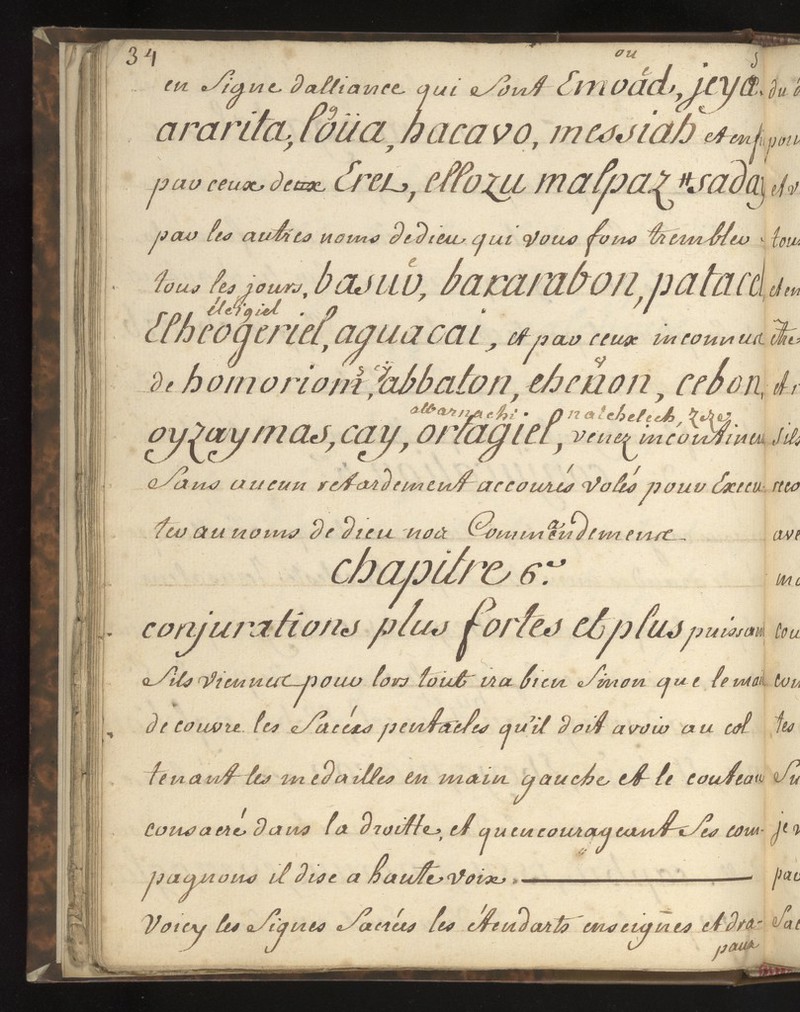 34
ou
en Signe dalliance qui Sont Emoäd, jeya
ararita, loüa, hacavo, messiah et enf
par ceux de Erel, ellozu malpaz sada
par les autres noms de dieu qui vous fons trembler
tous les jours, basuv, baxarabon, patacel
éleigiel
Elheogeriel, aguacai, et par ceux inconnus
de homoriom, abbaton, ehenon, cebon,
albarnachi. nalchelech,
oyzaymas, cay, ortagiel, venez incontinen
Sans aucun retardement accourés volés pour Execu
ter au noms de dieu nos Commendemens.
chapitre 6.e
conjurations plus fortes et plus puissan
Sils viennent pour lors tout ira bien Sinon que le mai
decouvre les Sacérs pentacles qu'il doit avoir au col
tenant les medailles en main gauche et le couteau
consacré dans la droitte, et quencourageant Ses com-
pagnons il dise a haute voix.
Voicy les Signes Sacrées les étendarts enseignes et dra-
paux